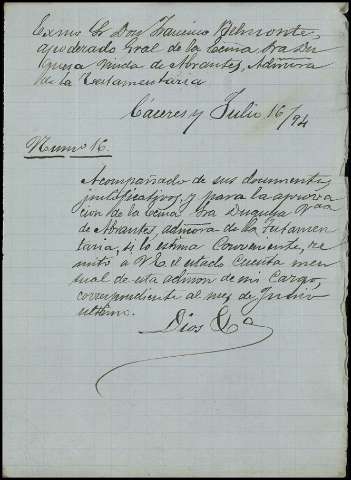 Excmo Sr Don Francisco Belmonte,
apoderado Gral de la Excma Sra Du
quesa Viuda de Abrantes, Admora
de la Testamentaria
Cáceres y Julio 16/94
Numo 16.
Acompañado de sus documentos
justificativos, y para la aprova
cion de la Excma Sra Duquesa Vda
de Abrantes, admora de la Testamen
taria, si lo estima Convenente, re
mito a VE el estado Cuenta men
sual de esta admon de mi Cargo,
correspondiente al mes de Junio
ultimo.
Dios &a